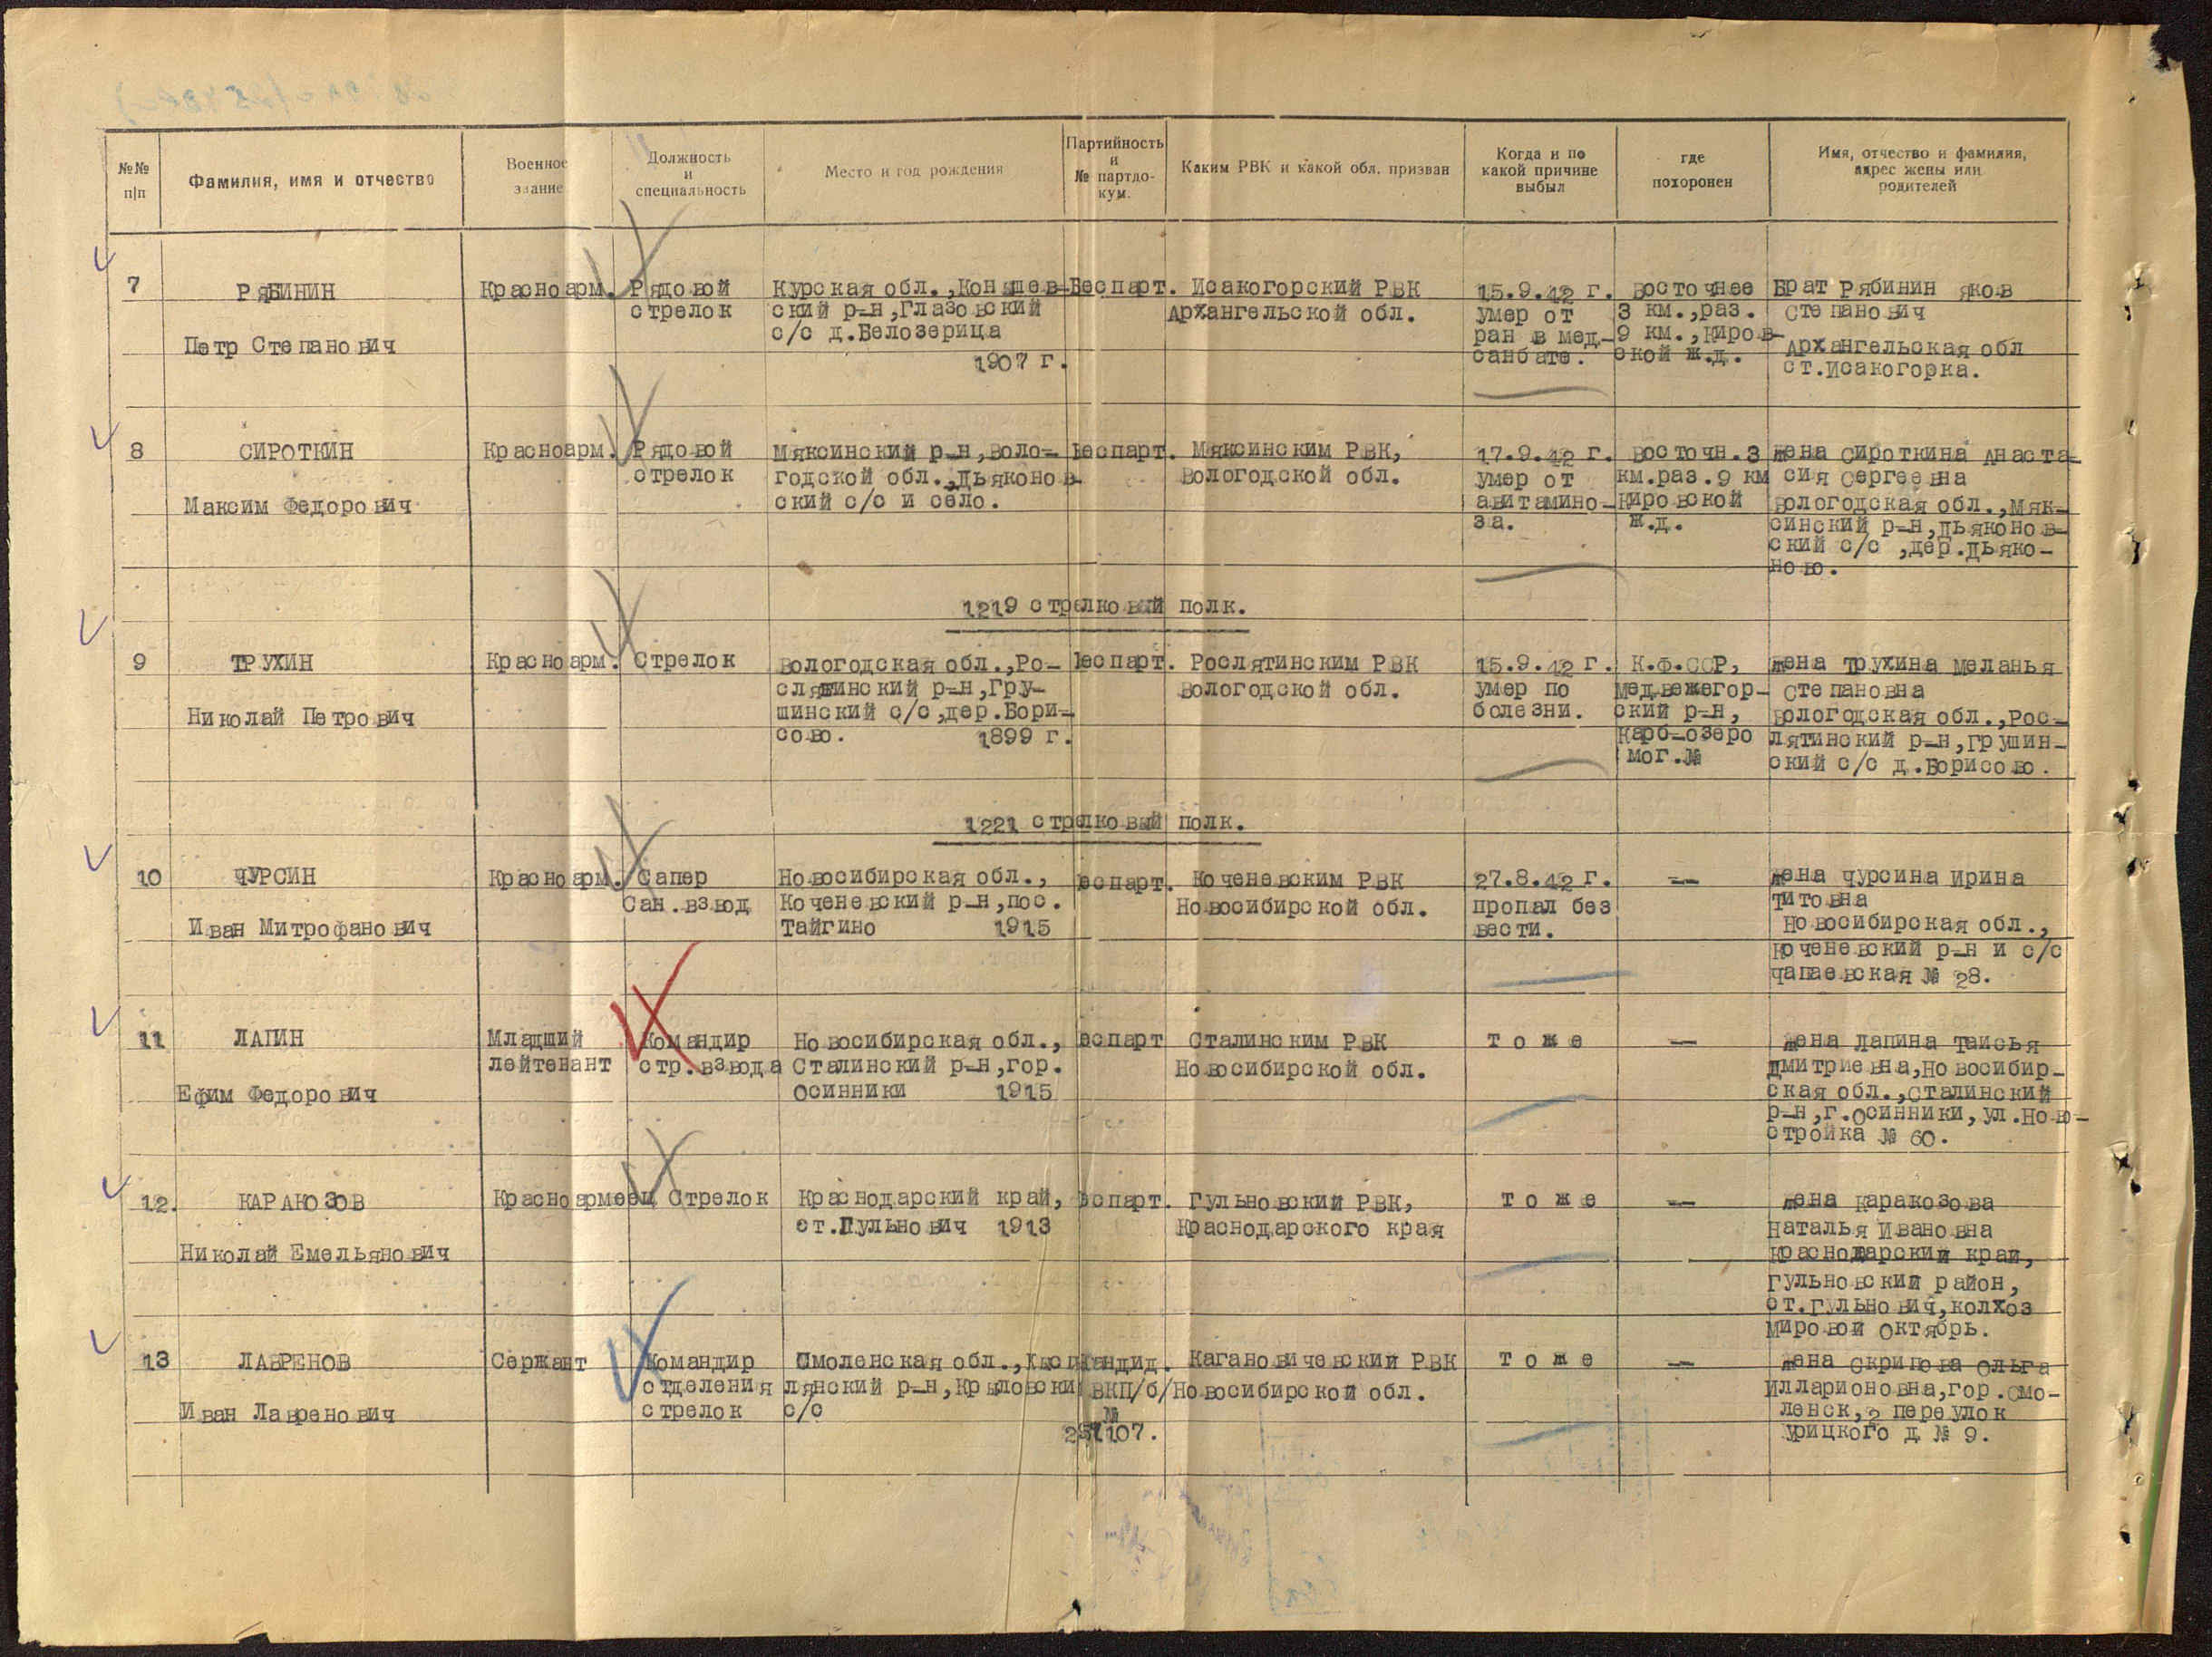 №№ п|п
Фамилия, имя и отчество
Военное звание
Должность и специальность
Место и год рождения
Партийность и № партдокум.
Каким РВК и какой обл. призван
Когда и по какой причине выбыл
где похоронен
Имя, отчество и фамилия, адрес жены или родителей
7
РЯБИНИН
Петр Степанович
Красноарм.
Рядовой
стрелок
Курская обл.,Конышев-
ский р-н,Глазовский
с/с д.Белозерица
1907 г.
Беспарт.
Исакогорский РВК
Архангельской обл.
15.9.42 г.
умер от
ран в мед-
санбате.
Восточнее
3 км.,раз.
9 км.,Киров-
ской ж.д.
Брат Рябинин Яков
Степанович
Архангельская обл
ст.Исакогорка.
8
СИРОТКИН
Максим Федорович
Красноарм.
Рядовой
стрелок
Мяксинский р-н,Воло-
годской обл.,Дьяконов-
ский с/с и село.
Беспарт.
Мяксинским РВК,
Вологодской обл.
17.9.42 г.
умер от
авитамино-
за.
Восточн.3
км.раз.9 км
Кировской
ж.д.
Жена Сироткина Анаста-
сия Сергеевна
Вологодская обл.,Мяк-
синский р-н,Дьяконов-
ский с/с ,дер.Дьяко-
ново.
1219 стрелковый полк.
9
ТРУХИН
Николай Петрович
Красноарм.
Стрелок
Вологодская обл.,Ро-
слятинский р-н,Гру-
шинский с/с,дер.Бори-
сово.
1899 г.
Беспарт.
Рослятинским РВК
Вологодской обл.
15.9.42 г.
умер по
болезни.
К.Ф.ССР,
Медвежегор-
ский р-н,
Карб-озеро
мог.№
Жена Трухина Меланья
Степановна
Вологодская обл.,Рос-
лятинский р-н,Грушин-
ский с/с д.Борисово.
1221 стрелковый полк.
10
ЧУРСИН
Иван Митрофанович
Красноарм.
Сапер
Сан.взвод
Новосибирская обл.,
Коченевский р-н,пос.
Тайгино 1915
еспарт.
Коченевским РВК
Новосибирской обл.
27.8.42 г.
пропал без
вести.
—
Жена Чурсина Ирина
Титовна
Новосибирская обл.,
Коченевский р-н и с/с
Чапаевская № 28.
11
ЛАПИН
Ефим Федорович
Младший
лейтенант
Командир
стр.взвода
Новосибирская обл.,
Сталинский р-н,гор.
Осинники 1915
еспарт
Сталинским РВК
Новосибирской обл.
т о ж е
—
Жена Лапина Таисья
Дмитриевна,Новосибир-
ская обл.,Сталинский
р-н,г.Осинники,ул.Ново-
стройка № 60.
12.
КАРАКОЗОВ
Николай Емельянович
Красноармеец
Стрелок
Краснодарский край,
ст.Гульнович 1913
еспарт.
Гульновский РВК,
Краснодарского края
т о ж е
—
Жена Каракозова
Наталья Ивановна
Краснодарский край,
Гульновский район,
ст.Гульнович,колхоз
Мировой Октябрь.
13
ЛАВРЕНОВ
Иван Лавренович
Сержант
Командир
отделения
стрелок
Смоленская обл.,
лянский р-н,Крыловски
с/с
Кандид.
ВКП/б/
№
Кагановичевский РВК
Новосибирской обл.
т о ж е
—
Жена Скрипова Ольга
Илларионовна,гор.Смо-
ленск,2 переулок
Урицкого д № 9.